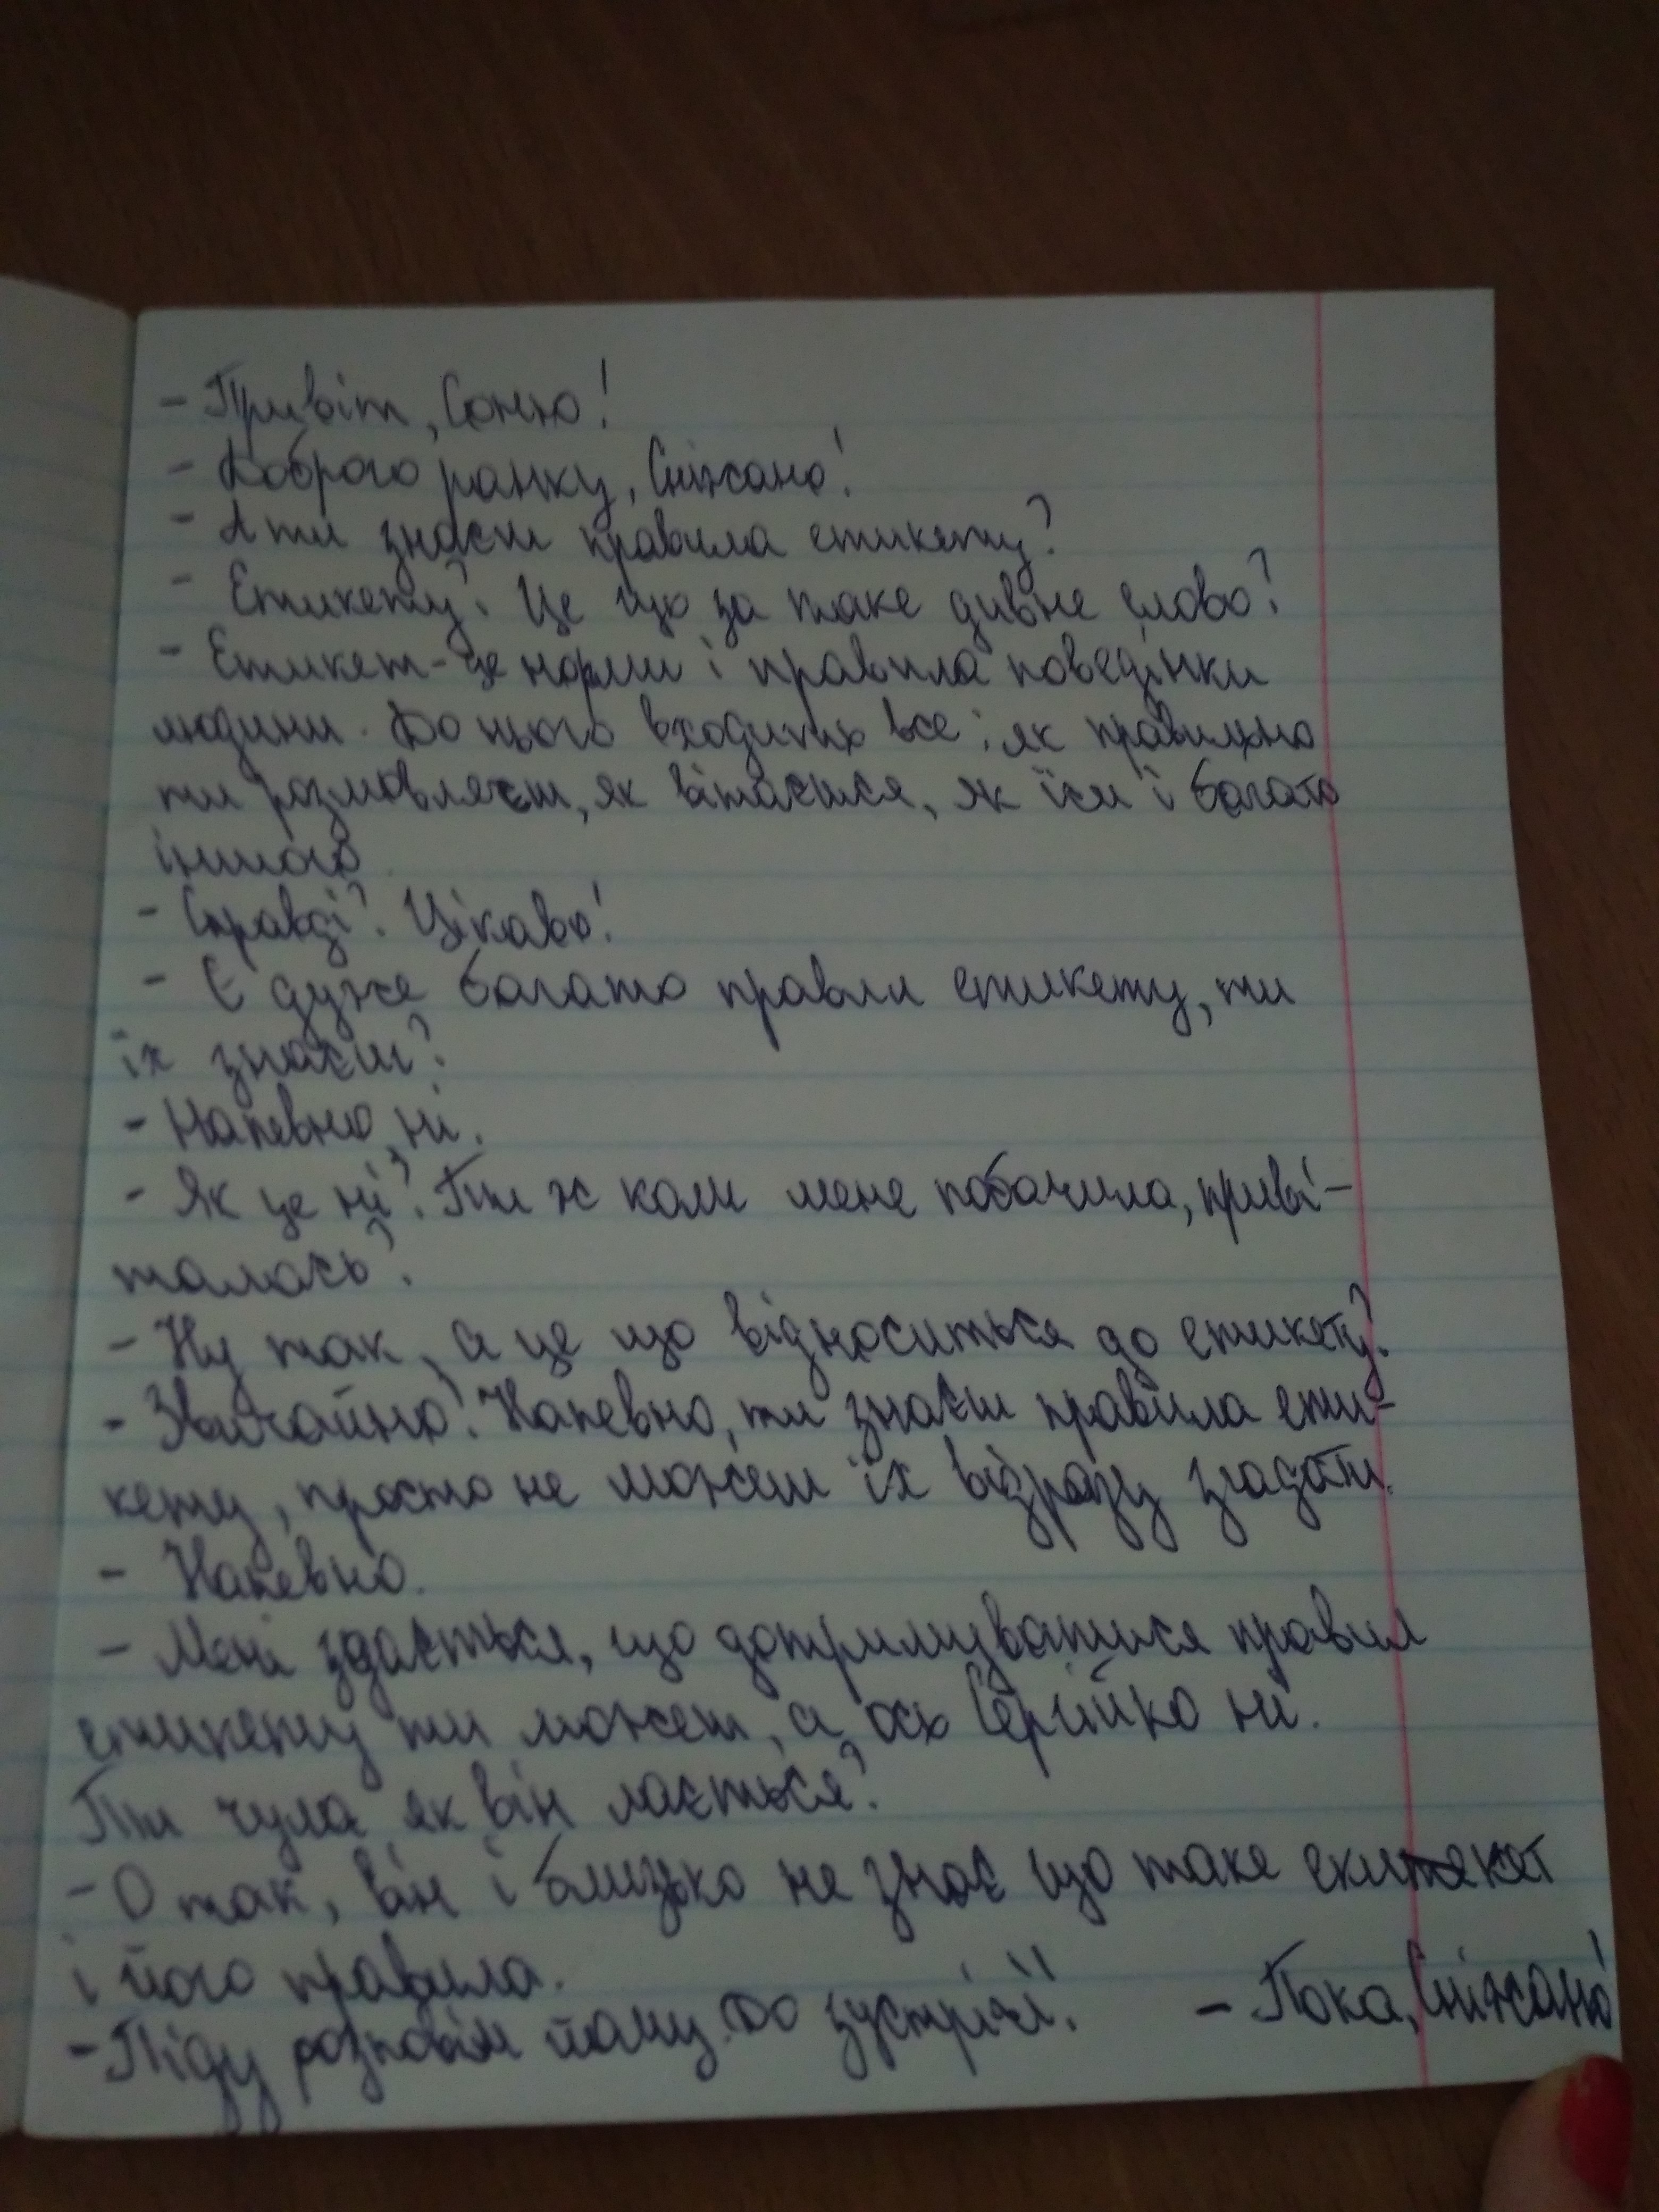 - Привіт, Соню!
- Доброго ранку, Сніжано!
- А ти знаєш правила етикету?
- Етикету? Це що за таке дивне слово?
- Етикет - це норми і правила поведінки
людини. До нього входить все: як правильно
ти розмовляєш, як вітаєшся, як їси і багато
іншого
- Справді? Цікаво!
- Є дуже багато правил етикету, ти
їх знаєш?
- Напевно, ні.
- Як це ні? Ти ж коли мене побачила, приві-
талась?
- Ну так, а це що відноситься до етикету?
- Звичайно! Напевно, ти знаєш правила ети-
кету, просто не можеш їх відразу згадати.
- Напевно.
- Мені здається, що дотримуватися правил
етикету ти можеш, а ось Сергійко ні.
Ти чула як він лається?
- О так, він і близько не знає що таке екитекет
і його правила.
- Піду розповім йому. До зустрічі!. - Пока, Сніжано!